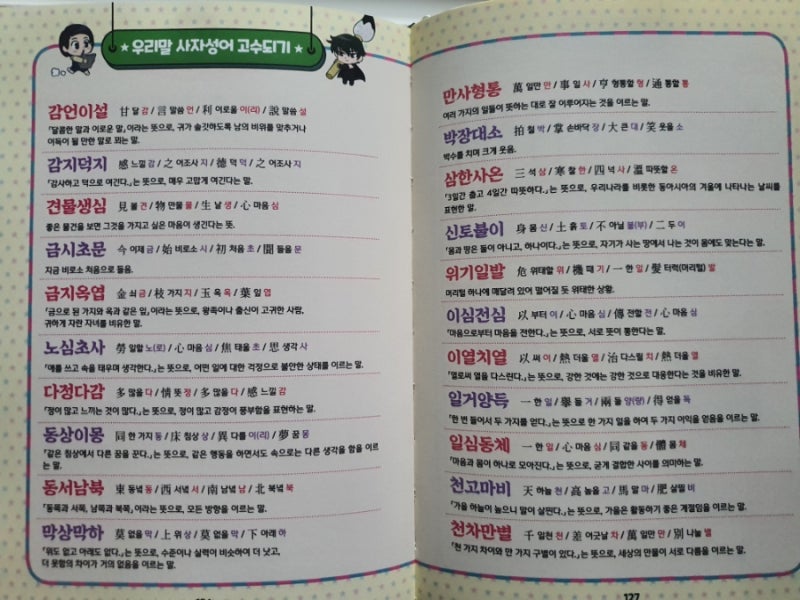 ★ 우리말 사자성어 고수되기 ★
감언이설 甘 달 감 / 言 말씀 언 / 利 이로울 이(리) / 說 말씀 설
「달콤한 말과 이로운 말」이라는 뜻으로, 귀가 솔깃하도록 남의 비위를 맞추거나
이득이 될 만한 말로 꾀는 말.
감지덕지 感 느낄 감 / 之 어조사 지 / 德 덕 덕 / 之 어조사 지
「감사하고 덕으로 여긴다.」는 뜻으로, 매우 고맙게 여긴다는 말.
견물생심 見 볼 견 / 物 만물 물 / 生 날 생 / 心 마음 심
좋은 물건을 보면 그것을 가지고 싶은 마음이 생긴다는 뜻.
금시초문 今 이제 금 / 始 비로소 시 / 初 처음 초 / 聞 들을 문
지금 비로소 처음으로 들음.
금지옥엽 金 쇠 금 / 枝 가지 지 / 玉 옥 옥 / 葉 잎 엽
「금으로 된 가지와 옥과 같은 잎」이라는 뜻으로, 왕족이나 출신이 고귀한 사람,
귀하게 자란 자녀를 비유한 말.
노심초사 勞 일할 노(로) / 心 마음 심 / 焦 태울 초 / 思 생각 사
「애를 쓰고 속을 태우며 생각한다.」는 뜻으로, 어떤 일에 대한 걱정으로 불안한 상태를 이르는 말.
다정다감 多 많을 다 / 情 뜻 정 / 多 많을 다 / 感 느낄 감
「정이 많고 느끼는 것이 많다.」는 뜻으로, 정이 많고 감정이 풍부함을 표현하는 말.
동상이몽 同 한 가지 동 / 床 침상 상 / 異 다를 이(리) / 夢 꿈 몽
「같은 침상에서 다른 꿈을 꾼다.」는 뜻으로, 같은 행동을 하면서도 속으로는 다른 생각을 함을 이르
는 말.
동서남북 東 동녘 동 / 西 서녘 서 / 南 남녘 남 / 北 북녘 북
「동쪽과 서쪽, 남쪽과 북쪽」이라는 뜻으로, 모든 방향을 이르는 말.
막상막하 莫 없을 막 / 上 위 상 / 莫 없을 막 / 下 아래 하
「위도 없고 아래도 없다.」는 뜻으로, 수준이나 실력이 비슷하여 더 낫고,
더 못함의 차이가 거의 없음을 이르는 말.
만사형통 萬 일만 만 / 事 일 사 / 亨 형통할 형 / 通 통할 통
여러 가지의 일들이 뜻하는 대로 잘 이루어지는 것을 이르는 말.
박장대소 拍 칠 박 / 掌 손바닥 장 / 大 큰 대 / 笑 웃을 소
박수를 치며 크게 웃음.
삼한사온 三 석 삼 / 寒 찰 한 / 四 넉 사 / 溫 따뜻할 온
「3일간 춥고 4일간 따뜻하다.」는 뜻으로, 우리나라를 비롯한 동아시아의 겨울에 나타나는 날씨를
표현한 말.
신토불이 身 몸 신 / 土 흙 토 / 不 아닐 불(부) / 二 두 이
「몸과 땅은 둘이 아니고, 하나이다.」는 뜻으로, 자기가 사는 땅에서 나는 것이 몸에도 맞는다는 말.
위기일발 危 위태할 위 / 機 때 기 / 一 한 일 / 髮 터럭(머리털) 발
머리털 하나에 매달려 있어 떨어질 듯 위태한 상황.
이심전심 以 부터 이 / 心 마음 심 / 傳 전할 전 / 心 마음 심
「마음으로부터 마음을 전한다.」는 뜻으로, 서로 뜻이 통한다는 말.
이열치열 以 써 이 / 熱 더울 열 / 治 다스릴 치 / 熱 더울 열
「열로써 열을 다스린다.」는 뜻으로, 강한 것에는 강한 것으로 대응한다는 것을 비유한 말.
일거양득 一 한 일 / 擧 들 거 / 兩 둘 양(량) / 得 얻을 득
「한 번 들어서 두 가지를 얻다.」는 뜻으로 한 가지 일을 하여 두 가지 이익을 얻음을 이르는 말.
일심동체 一 한 일 / 心 마음 심 / 同 같을 동 / 體 몸 체
「마음과 몸이 하나로 모아진다.」는 뜻으로, 굳게 결합한 사이를 의미하는 말.
천고마비 天 하늘 천 / 高 높을 고 / 馬 말 마 / 肥 살찔 비
「가을 하늘이 높으니 말이 살찐다.」는 뜻으로, 가을은 활동하기 좋은 계절임을 이르는 말.
천차만별 千 일천 천 / 差 어긋날 차 / 萬 일만 만 / 別 나눌 별
「천 가지 차이와 만 가지 구별이 있다.」는 뜻으로, 세상의 만물이 서로 다름을 이르는 말.
127